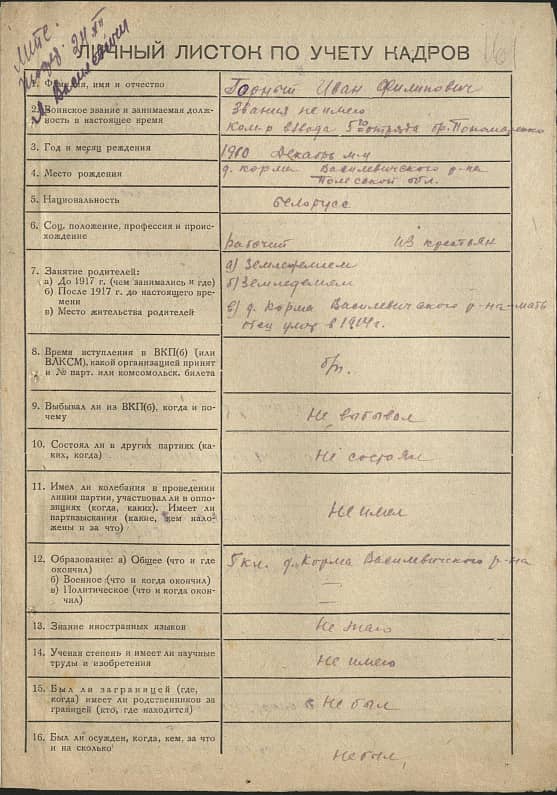 24/XII
Василевичи
ЛИЧНЫЙ ЛИСТОК ПО УЧЕТУ КАДРОВ
1. Фамилия, имя и отчество
Иван Филипович
2. Воинское звание и занимаемая долж-
ность в настоящее время
Звания не имею
Ком-р взвода 5го отряда бр. Пономаренко
3. Год и месяц рождения
1910 Декабрь м-ц
4. Место рождения
д. Корма Василевичского р-на
Полесской обл.
5. Национальность
белорусс
6. Соц. положение, профессия и проис-
хождение
рабочий из крестьян
7. Занятие родителей:
а) До 1917 г. (чем занимались и где)
б) После 1917 г. до настоящего вре-
мени
в) Место жительства родителей
а) Земледелием
б) Земледелием
в) д. Корма Василевичского р-на-мать
отец умер в 1914 г.
8. Время вступления в ВКП(б) (или
ВЛКСМ), какой организацией принят
и № парт. или комсомольск. билета
б/п.
9. Выбывал ли из ВКП(б), когда и по-
чему
Не выбывал
10. Состоял ли в других партиях (ка-
ких, когда)
Не состоял
11. Имел ли колебания в проведении
линии партии, участвовал ли в оппо-
зициях (когда, каких). Имеет ли
партвзыскания (какие, кем нало-
жены и за что)
Не имел
12. Образование: а) Общее (что и где
окончил)
б) Военное (что и когда окончил)
в) Политическое (что и когда окон-
чил)
5 кл. д. Корма Василевичского р-на
—
—
13. Знание иностранных языков
Не знаю
14. Ученая степень и имеет ли научные
труды и изобретения
Не имею
15. Был ли заграницей (где,
когда) имеет ли родственников за
границей (кто, где находится)
Не был
16. Был ли осужден, когда, кем, за что
и на сколько
Не был,